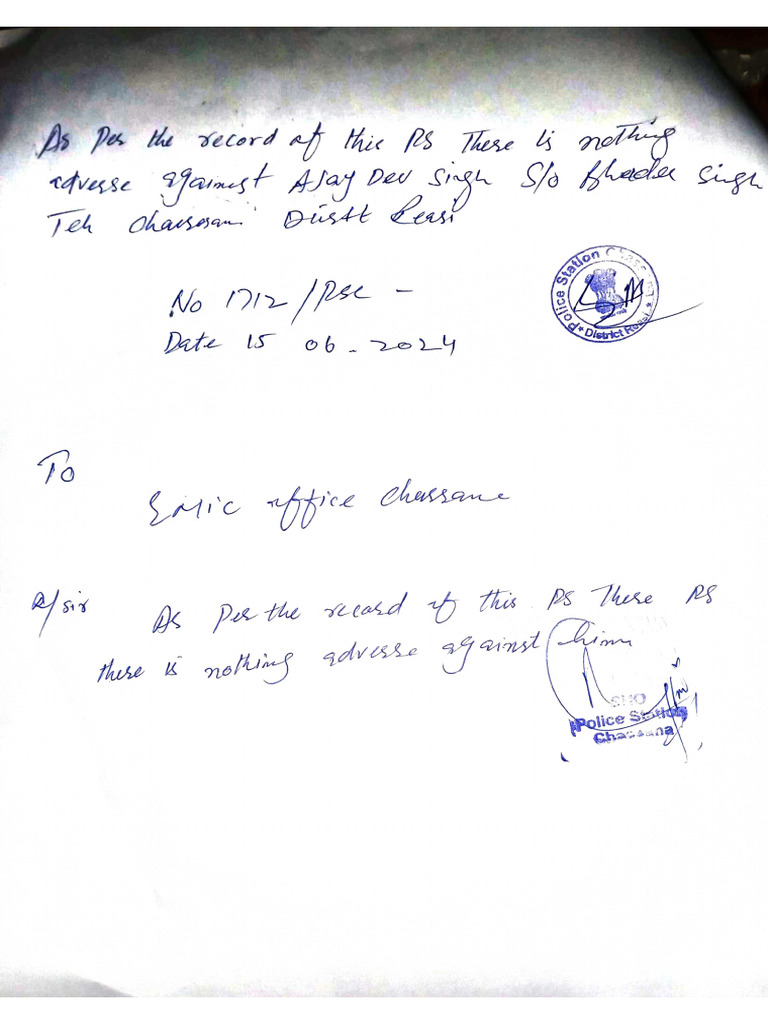 As Per the record of this PS There is nothing
adverse against Ajay Dev Singh S/o Singh
Teh Distt Reasi
No 1712/PSC -
Date 15 06. 2024
Police Station Chassana
* District Reasi *
To
office Chassana
R/sir As Per the record of this PS There PS
there is nothing adverse against him
SHO
Police Station
Chassana